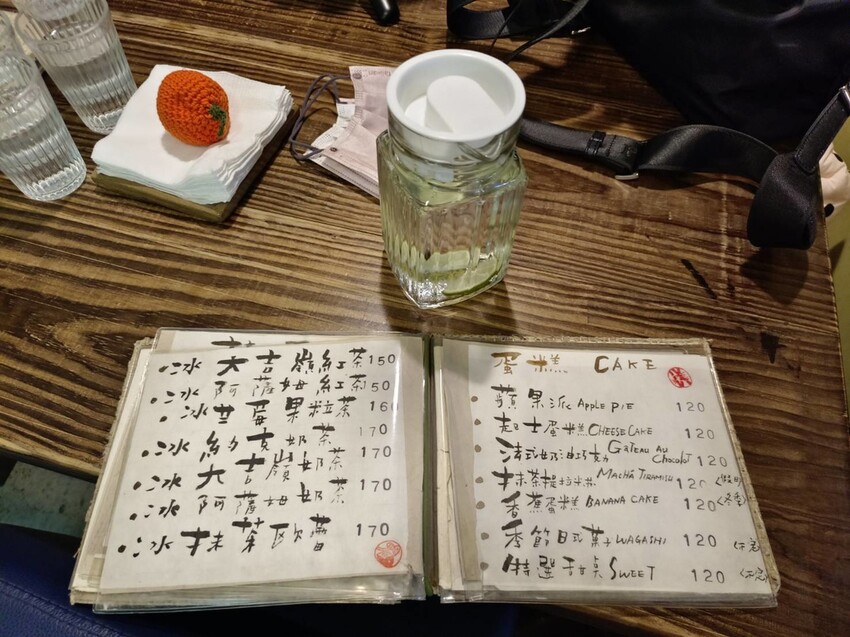 冰 大吉嶺紅茶 150
冰 阿薩姆紅茶 150
冰 草莓果粒茶 160
冰 約克奶茶 170
冰 大吉嶺奶茶 170
冰 阿薩姆奶茶 170
冰 抹茶歐蕾 170
蛋糕 CAKE
蘋果派 APPLE PIE 120
起士蛋糕 CHEESE CAKE 120
法式奶油巧克 GATEAU AU CHOCOLAT 120
抹茶提拉米蘇 MACHA TIRAMISU 120
香蕉蛋糕 BANANA CAKE 120
季節日式菓子 WAGASHI 120
特選甜點 SWEET 120